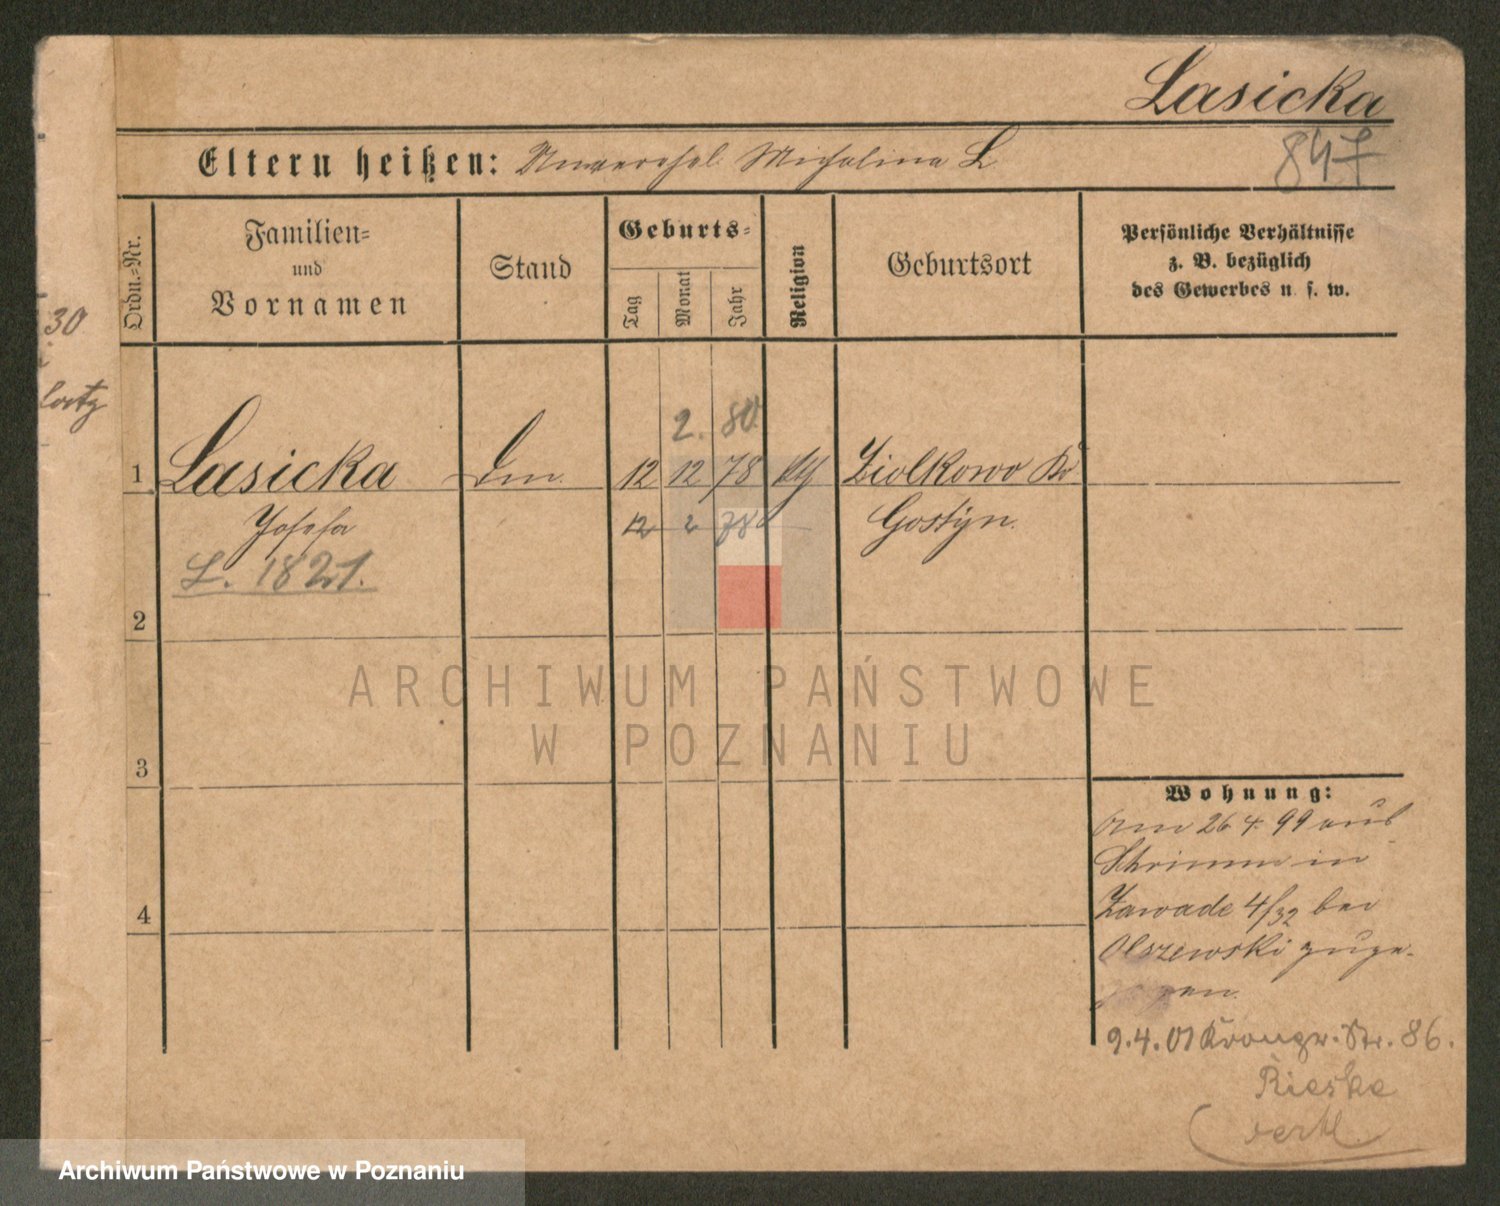 Lasicka
847
Eltern heißen: Unverehel. Michalina L
Ordn.=Nr.
Familien=
und
Vornamen
Stand
Geburts=
Tag
Monat
Jahr
Religion
Geburtsort
Persönliche Verhältnisse
z. B. bezüglich
des Gewerbes u. s. w.
30
2. 80.
1 Lasicka 12 12 78 Ziolkowo Kr
Josefa 12 2 78 Gostyn.
L. 1821.
2
3
4
Wohnung:
Am 26 4. 99 aus
Schrimm in
Zawade 4/32 bei
Olszewski zuge-
9.4.01 Kronpr. Str. 86.
Rieske
ARCHIWUM PAŃSTWOWE
W POZNANIU
Archiwum Państwowe w Poznaniu